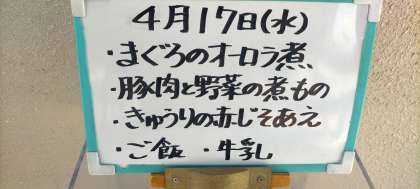 4月17日(水)
・まぐろのオーロラ煮
・豚肉と野菜の煮もの
・きゅうりの赤じそあえ
・ご飯 ・牛乳